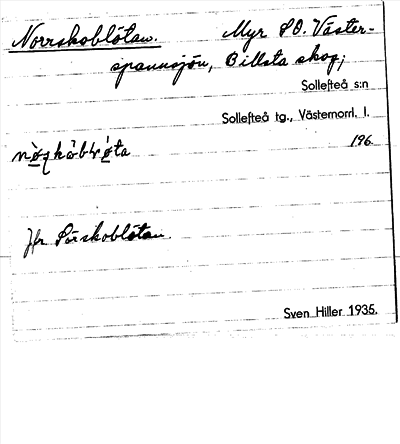 Norrskoblötan. Myr SO. Väster-
spannsjön, Billsta skog;
Sollefteå s:n
Sollefteå tg., Västernorrl. l.
196
Jfr Sörskoblötan.
Sven Hiller 1935.